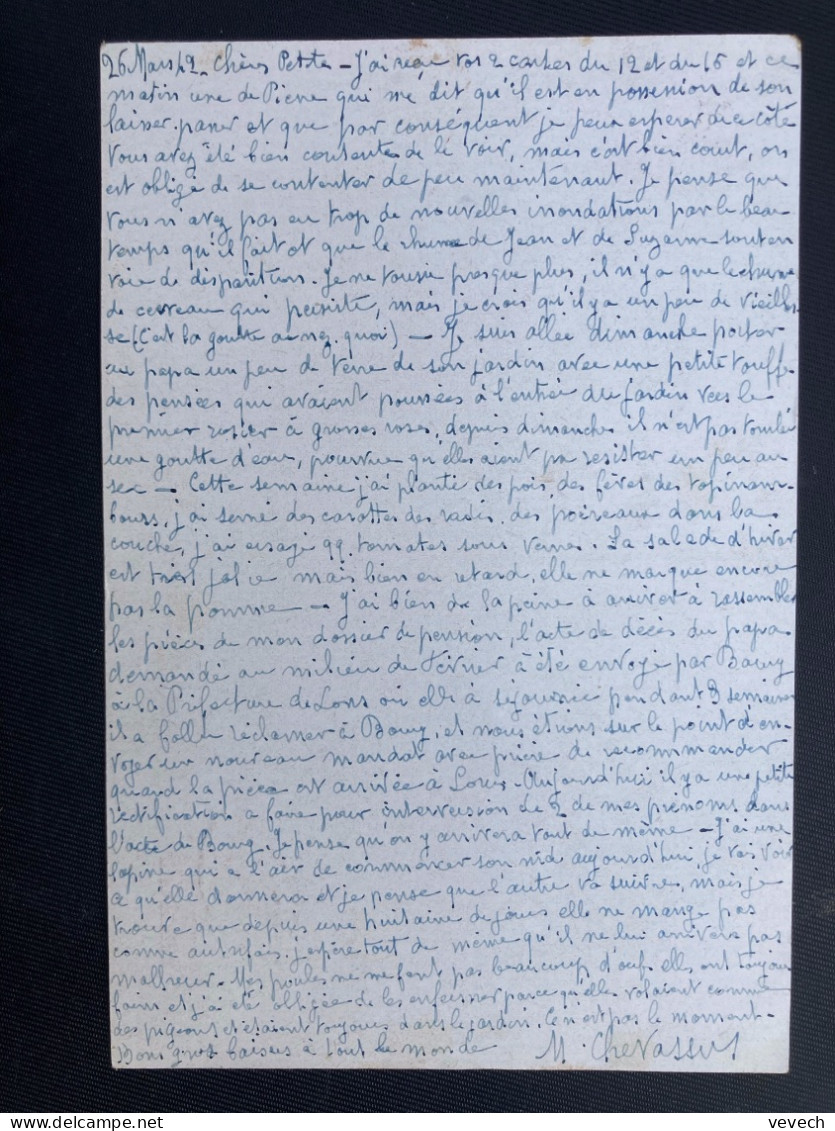 26 Mars 42. Chères Petites - J'ai reçu vos 2 cartes du 12 et du 16 et ce
matin une de Pierre qui me dit qu'il est en possession de son
laisser-passer et que par conséquent je peux espérer de ce côté
Vous avez été bien contentes de le voir, mais c'est bien court, on
est obligé de se contenter de peu maintenant. Je pense que
vous n'avez pas eu trop de nouvelles inondations par le beau
temps qu'il fait et que le rhume de Jean et de Suzanne sont en
voie de disparition. Je ne tousse presque plus, il n'y a que le rhume
de cerveau qui persiste, mais je crois qu'il y a un peu de vieilles-
se (c'est la goutte au nez quoi) - Je suis allée dimanche porter
au papa un peu de terre de son jardin avec une petite touffe
des pensées qui avaient poussées à l'entrée du jardin vers le
premier rosier à grosses roses, depuis dimanche il n'est pas tombé
une goutte d'eau, pourvu qu'elles aient pu resister un peu au
sec - Cette semaine j'ai planté des pois, des fèves des topinam-
bours, j'ai semé des carottes des radis, des poireaux dans la
couche, j'ai 99 tomates sous verres. La salade d'hiver
est très jolie mais bien en retard, elle ne marque encore
pas la pomme - J'ai bien de la peine à arriver à rassembler
les pièces de mon dossier de pension, l'acte de décès du papa
demandé au milieu de Février à été envoyé par Bourg
à la Préfecture de Lons où elle à séjournée pendant 3 semaines
il a fallu réclamer à Bourg, et nous étions sur le point d'en-
voyer un nouveau mandat avec prière de recommander
quand la pièce est arrivée à Lons. Aujourd'hui il y a une petite
rectification a faire pour interversion de 2 de mes prénoms dans
l'acte de Bourg. Je pense qu'on y arrivera tout de même - J'ai une
lapine qui a l'air de commencer son nid aujourd'hui, je vais voir
ce qu'elle donnera et je pense que l'autre va suivre, mais je
trouve que depuis une huitaine de jours elle ne mange pas
comme autrefois. j'espère tout de même qu'il ne lui arrivera pas
malheur - Mes poules ne me font pas beaucoup d'oeufs elles ont toujours
faim et j'ai été obligée de les enfermer parce qu'elles volaient comme
des pigeons et étaient toujours dans le jardin. Ce n'est pas le moment -
Bons gros baisers à tout le monde M. Chevassus
vevech